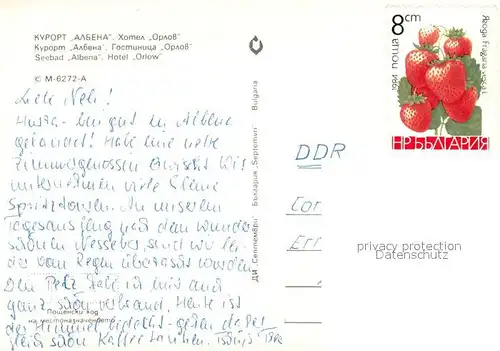 КУРОРТ „АЛБЕНА". Хотел „Орлов"
Курорт „Албена". Гостиница „Орлов"
Seebad „Albena". Hotel „Orlow"
© М-6272-А
Liebe Neli!
Hurra - bin gut in Albena
gelandet! Habe eine nette
Zimmergenossin erwischt. Wir
unternehmen viele kleine
Spritztouren. An unserem
Tagesausflug nach dem wunder
schönen Nesseber sind wir lei-
der vom Regen überrascht worden.
Den Petz habe ich mir auch
ganz schön verbrannt. Heute ist
der Himmel bedeckt - gehen
gleich schön Kaffee trinken.
Пощенски код
на местоназначението
ДИ „Септември" България „Septemvri" Bulgaria
8 cm
поща
1984
Ягода Fragaria vesca L.
НР БЪЛГАРИЯ
DDR
privacy protection
Datenschutz